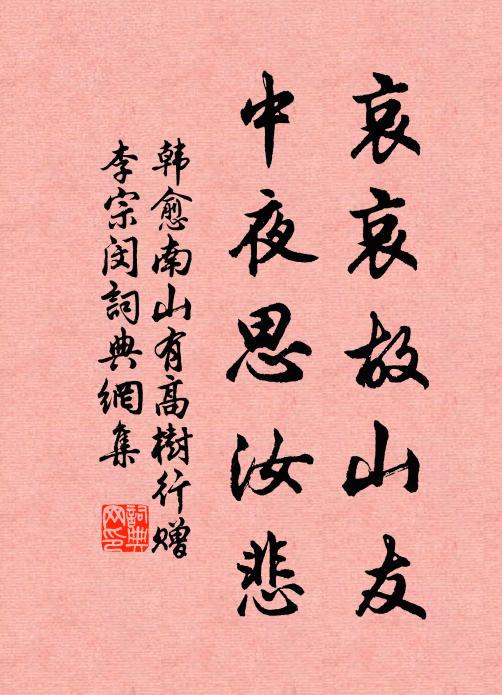 哀哀故山友
中夜思汝悲
韩愈南山有高樹行赠
李宗闵詞典網集
詞典
网印